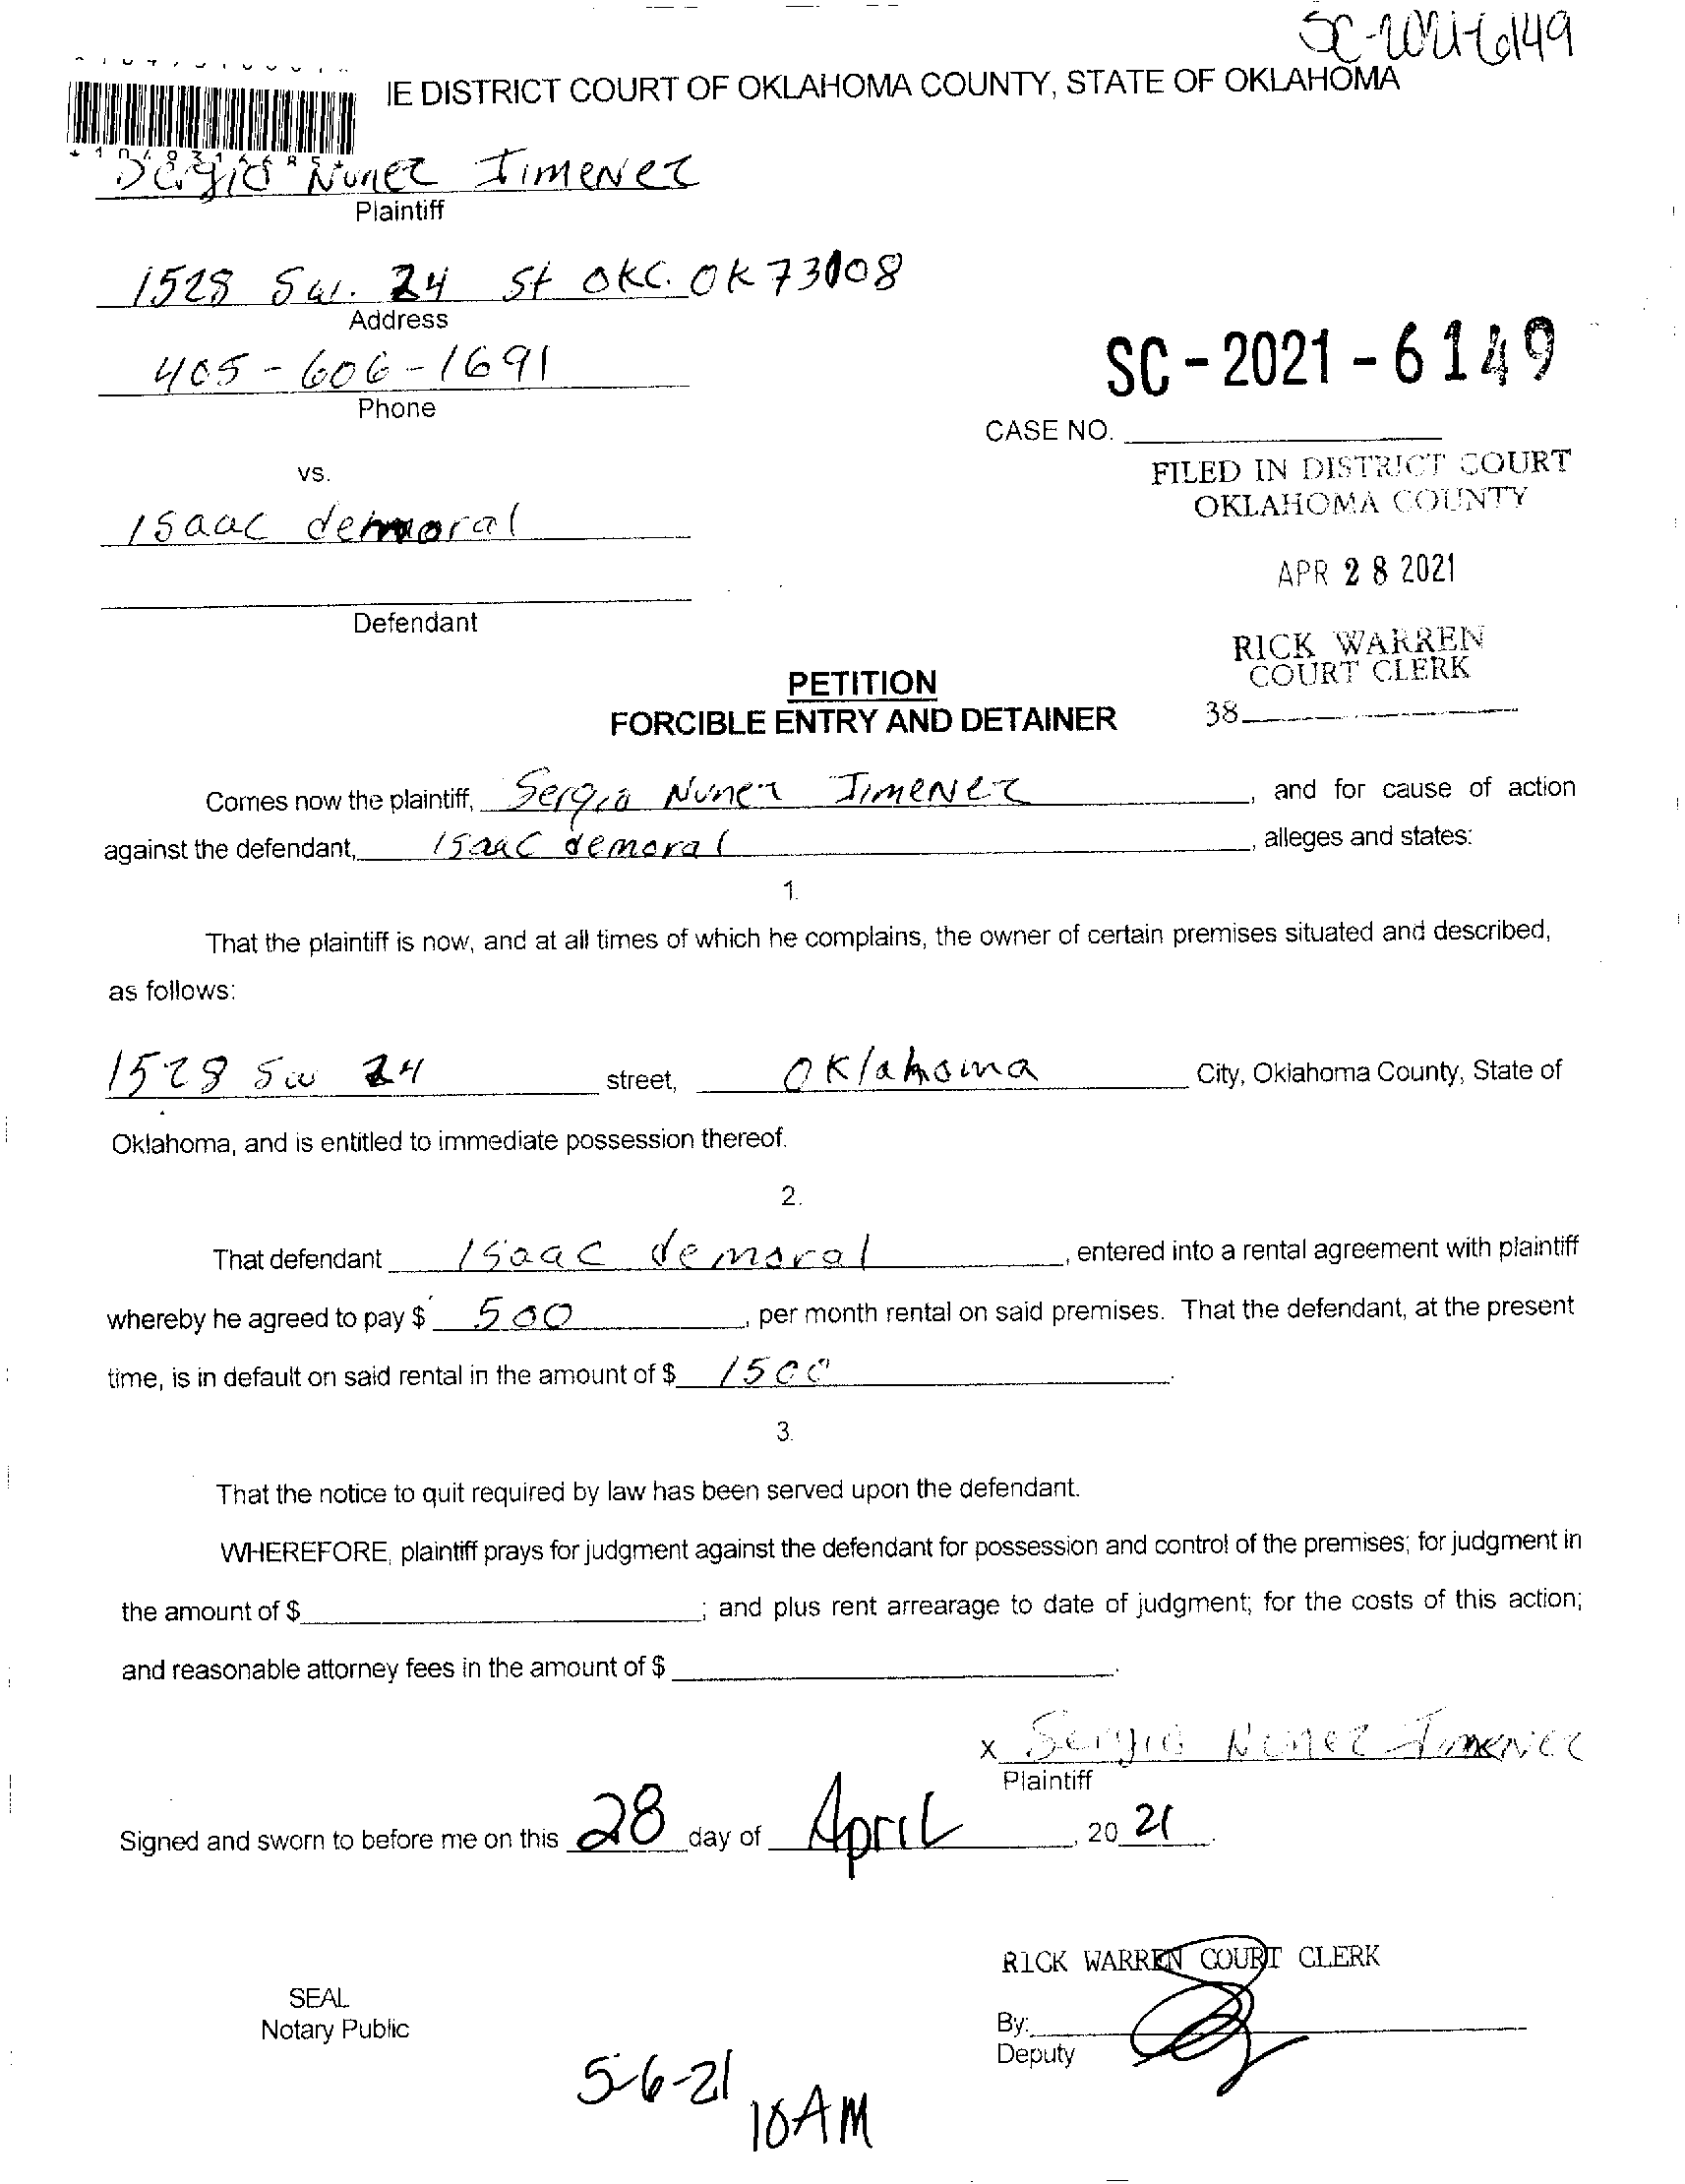 SC-2021-6149
IE DISTRICT COURT OF OKLAHOMA COUNTY, STATE OF OKLAHOMA
Sergio Nunez Jimenez
Plaintiff
1528 SW. 24 St OKC. OK 73108
Address
405-606-1691
Phone
SC-2021-6149
CASE NO.
vs.
FILED IN DISTRICT COURT
OKLAHOMA COUNTY
Isaac demoral
APR 28 2021
Defendant
RICK WARREN
COURT CLERK
38
PETITION
FORCIBLE ENTRY AND DETAINER
Comes now the plaintiff, Sergio Nunez Jimenez, and for cause of action
against the defendant, Isaac demoral, alleges and states:
1.
That the plaintiff is now, and at all times of which he complains, the owner of certain premises situated and described,
as follows:
1528 SW 24 street, Oklahoma City, Oklahoma County, State of
Oklahoma, and is entitled to immediate possession thereof.
2.
That defendant Isaac demoral, entered into a rental agreement with plaintiff
whereby he agreed to pay $ 500, per month rental on said premises. That the defendant, at the present
time, is in default on said rental in the amount of $ 1500.
3.
That the notice to quit required by law has been served upon the defendant.
WHEREFORE, plaintiff prays for judgment against the defendant for possession and control of the premises; for judgment in
the amount of $ ; and plus rent arrearage to date of judgment; for the costs of this action;
and reasonable attorney fees in the amount of $ .
x Sergio Nunez Jimenez
Plaintiff
Signed and sworn to before me on this 28 day of April, 20 21.
RICK WARREN COURT CLERK
SEAL
Notary Public
By:
Deputy
5-6-21
10AM